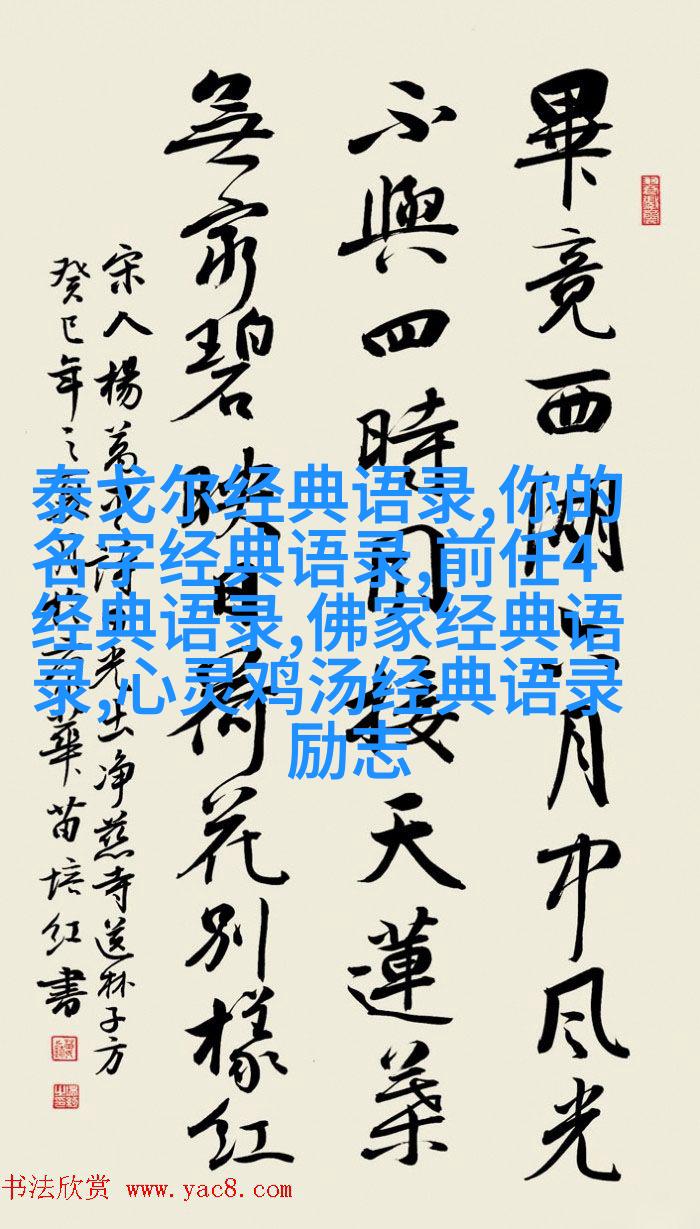 畢竟西湖六月中风光
不與四時同接天蓮葉
無穷碧映日荷花别樣红
宋人楊萬里詩曉出净慈寺送林子方
癸巳年之夏月於京華苗培红書
泰戈尔经典语录,你的
名字经典语录,前任4
经典语录,佛家经典语
录,心灵鸡汤经典语录
励志
书法欣赏 www.yac8.com